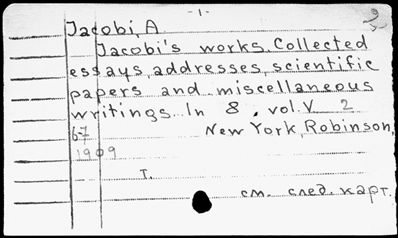 -1-
Jacobi, A.
Jacobi's works. Collected
essays, addresses, scientific
papers and miscellaneous
writings. In 8. vol. V 2
67 New York, Robinson,
1909
т.
см. след. карт.